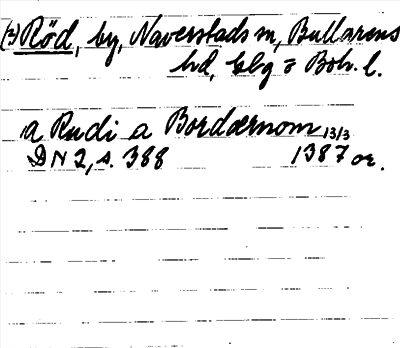 (3) Röd, by, Naverstads sn, Bullarens
hd, Gbg o Boh. l.
a Rudi a Bordærnom 13/3
DN 2, s. 388 1387 or.